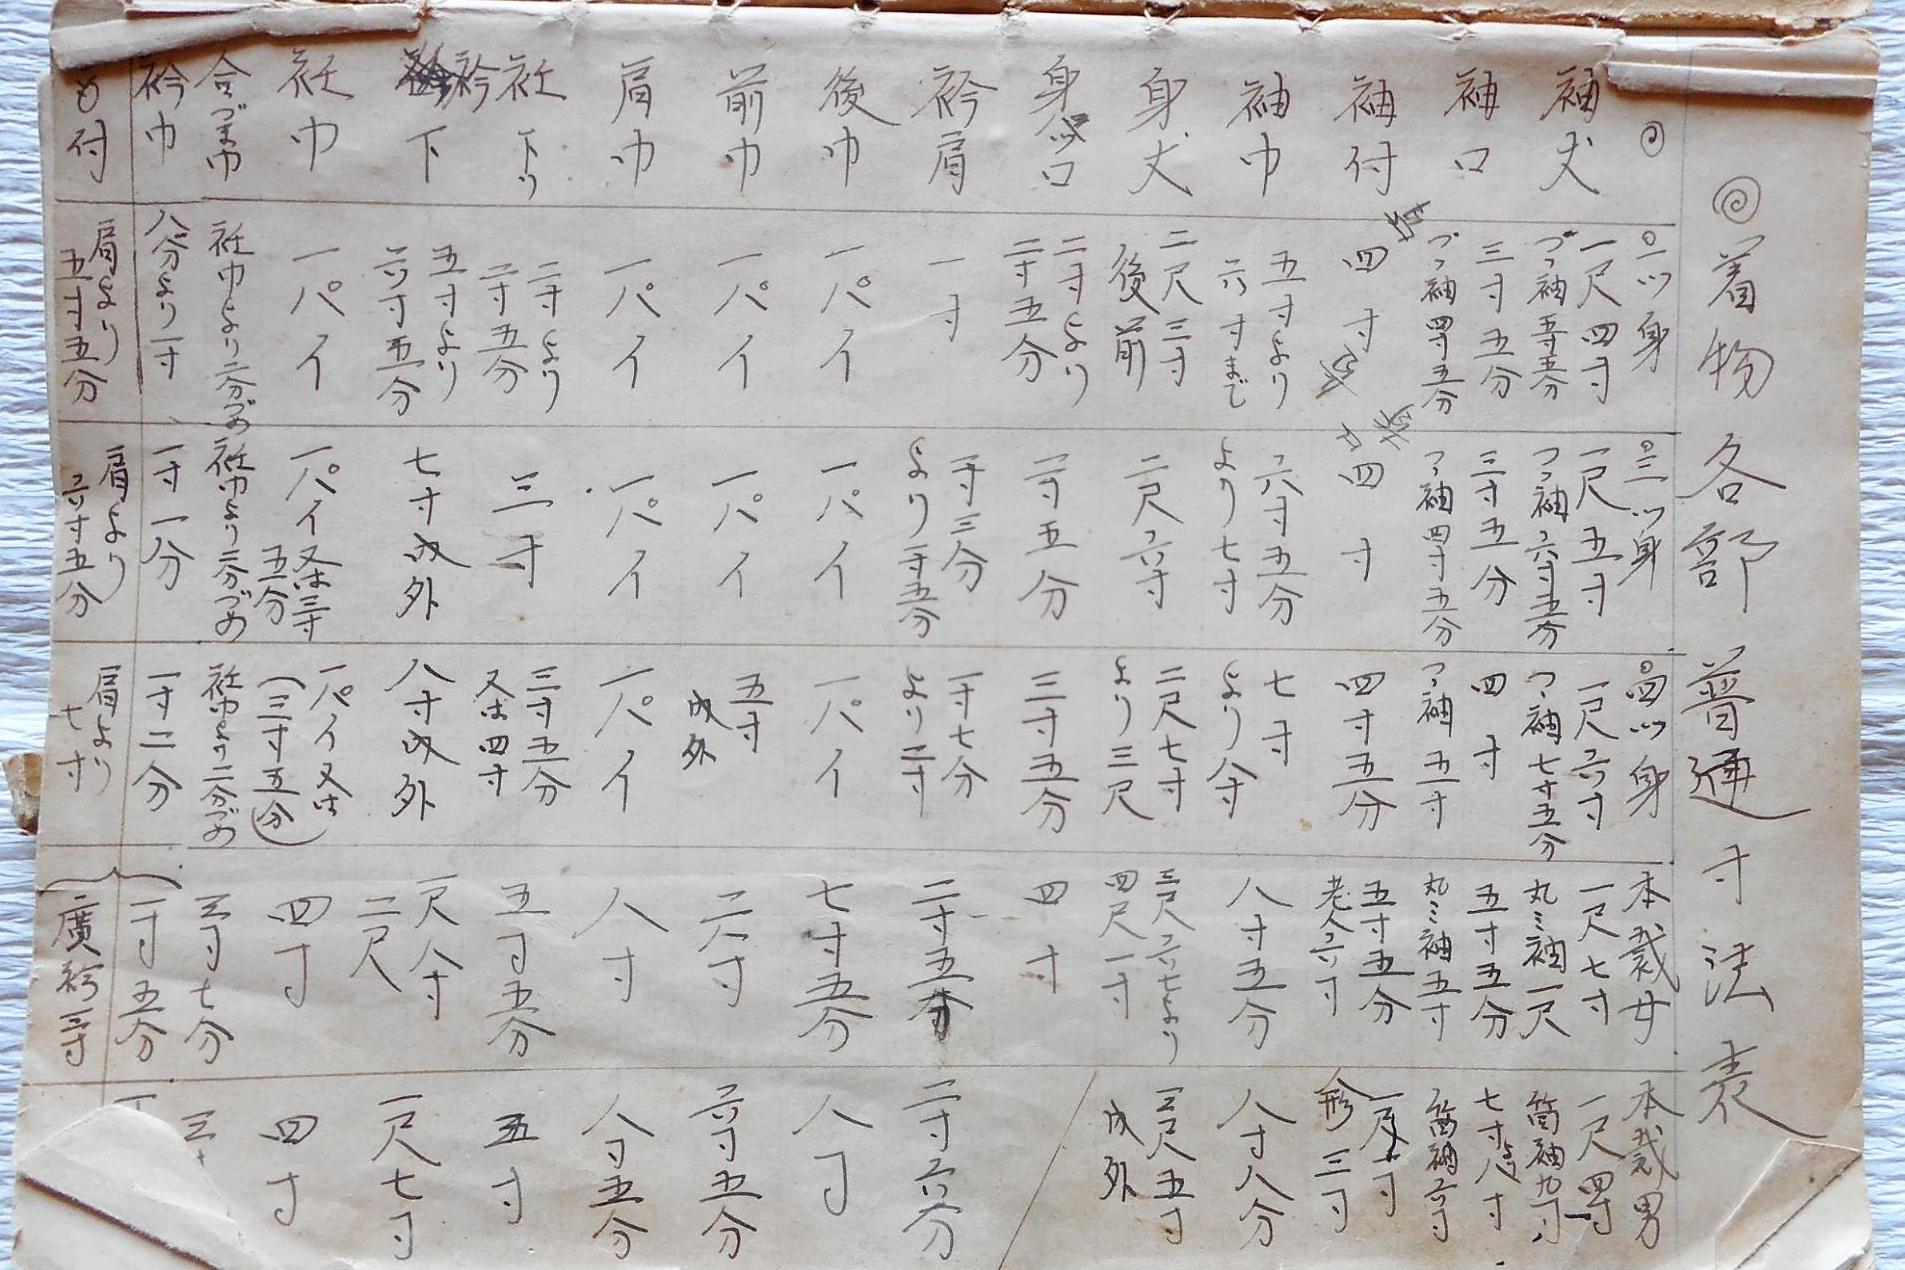 着物各部普通寸法表
袖丈
袖口
袖付
袖巾
身丈
身八ツ口
衿肩
後巾
前巾
肩巾
衽下り
衿下
衽巾
合づま巾
衿巾
付
一ツ身
一尺四寸
つつ袖五寸五分
三寸五分
つつ袖四寸五分
四寸
五寸より
六寸まで
二尺三寸
後前
二寸より
二寸五分
一寸
一パイ
一パイ
一パイ
二寸より
二寸五分
五寸より
六寸五分
一パイ
衽巾より二分づめ
八分より一寸
肩より
五寸五分
三ツ身
一尺五寸
つつ袖六寸五分
三寸五分
つつ袖四寸五分
四寸
六寸五分
より七寸
二尺六寸
二寸五分
一寸三分
より一寸五分
一パイ
一パイ
一パイ
三寸
七寸内外
一パイ又は三寸
五分
衽巾より二分づめ
一寸一分
肩より
六寸五分
四ツ身
一尺六寸
つつ袖七寸五分
四寸
つつ袖五寸
四寸五分
七寸
より八寸
二尺七寸
より三尺
三寸五分
一寸七分
より二寸
一パイ
五寸
内外
一パイ
三寸五分
又は四寸
八寸内外
一パイ又は
(三寸五分)
衽巾より二分づめ
一寸二分
肩より
七寸
本裁女
一尺七寸
丸ミ袖一尺
五寸五分
丸ミ袖五寸
五寸五分
老人六寸
八寸五分
三尺六七より
四尺一寸
四寸
二寸五分
七寸五分
六寸
八寸
五寸五分
一尺八寸
二尺
四寸
三寸七分
一寸五分
廣衿三寸
本裁男
一尺四寸
筒袖九寸
七寸 八寸
筒袖六寸
三寸
八寸八分
三尺五寸
内外
二寸六分
八寸
六寸五分
八寸五分
五寸
一尺七寸
四寸
三